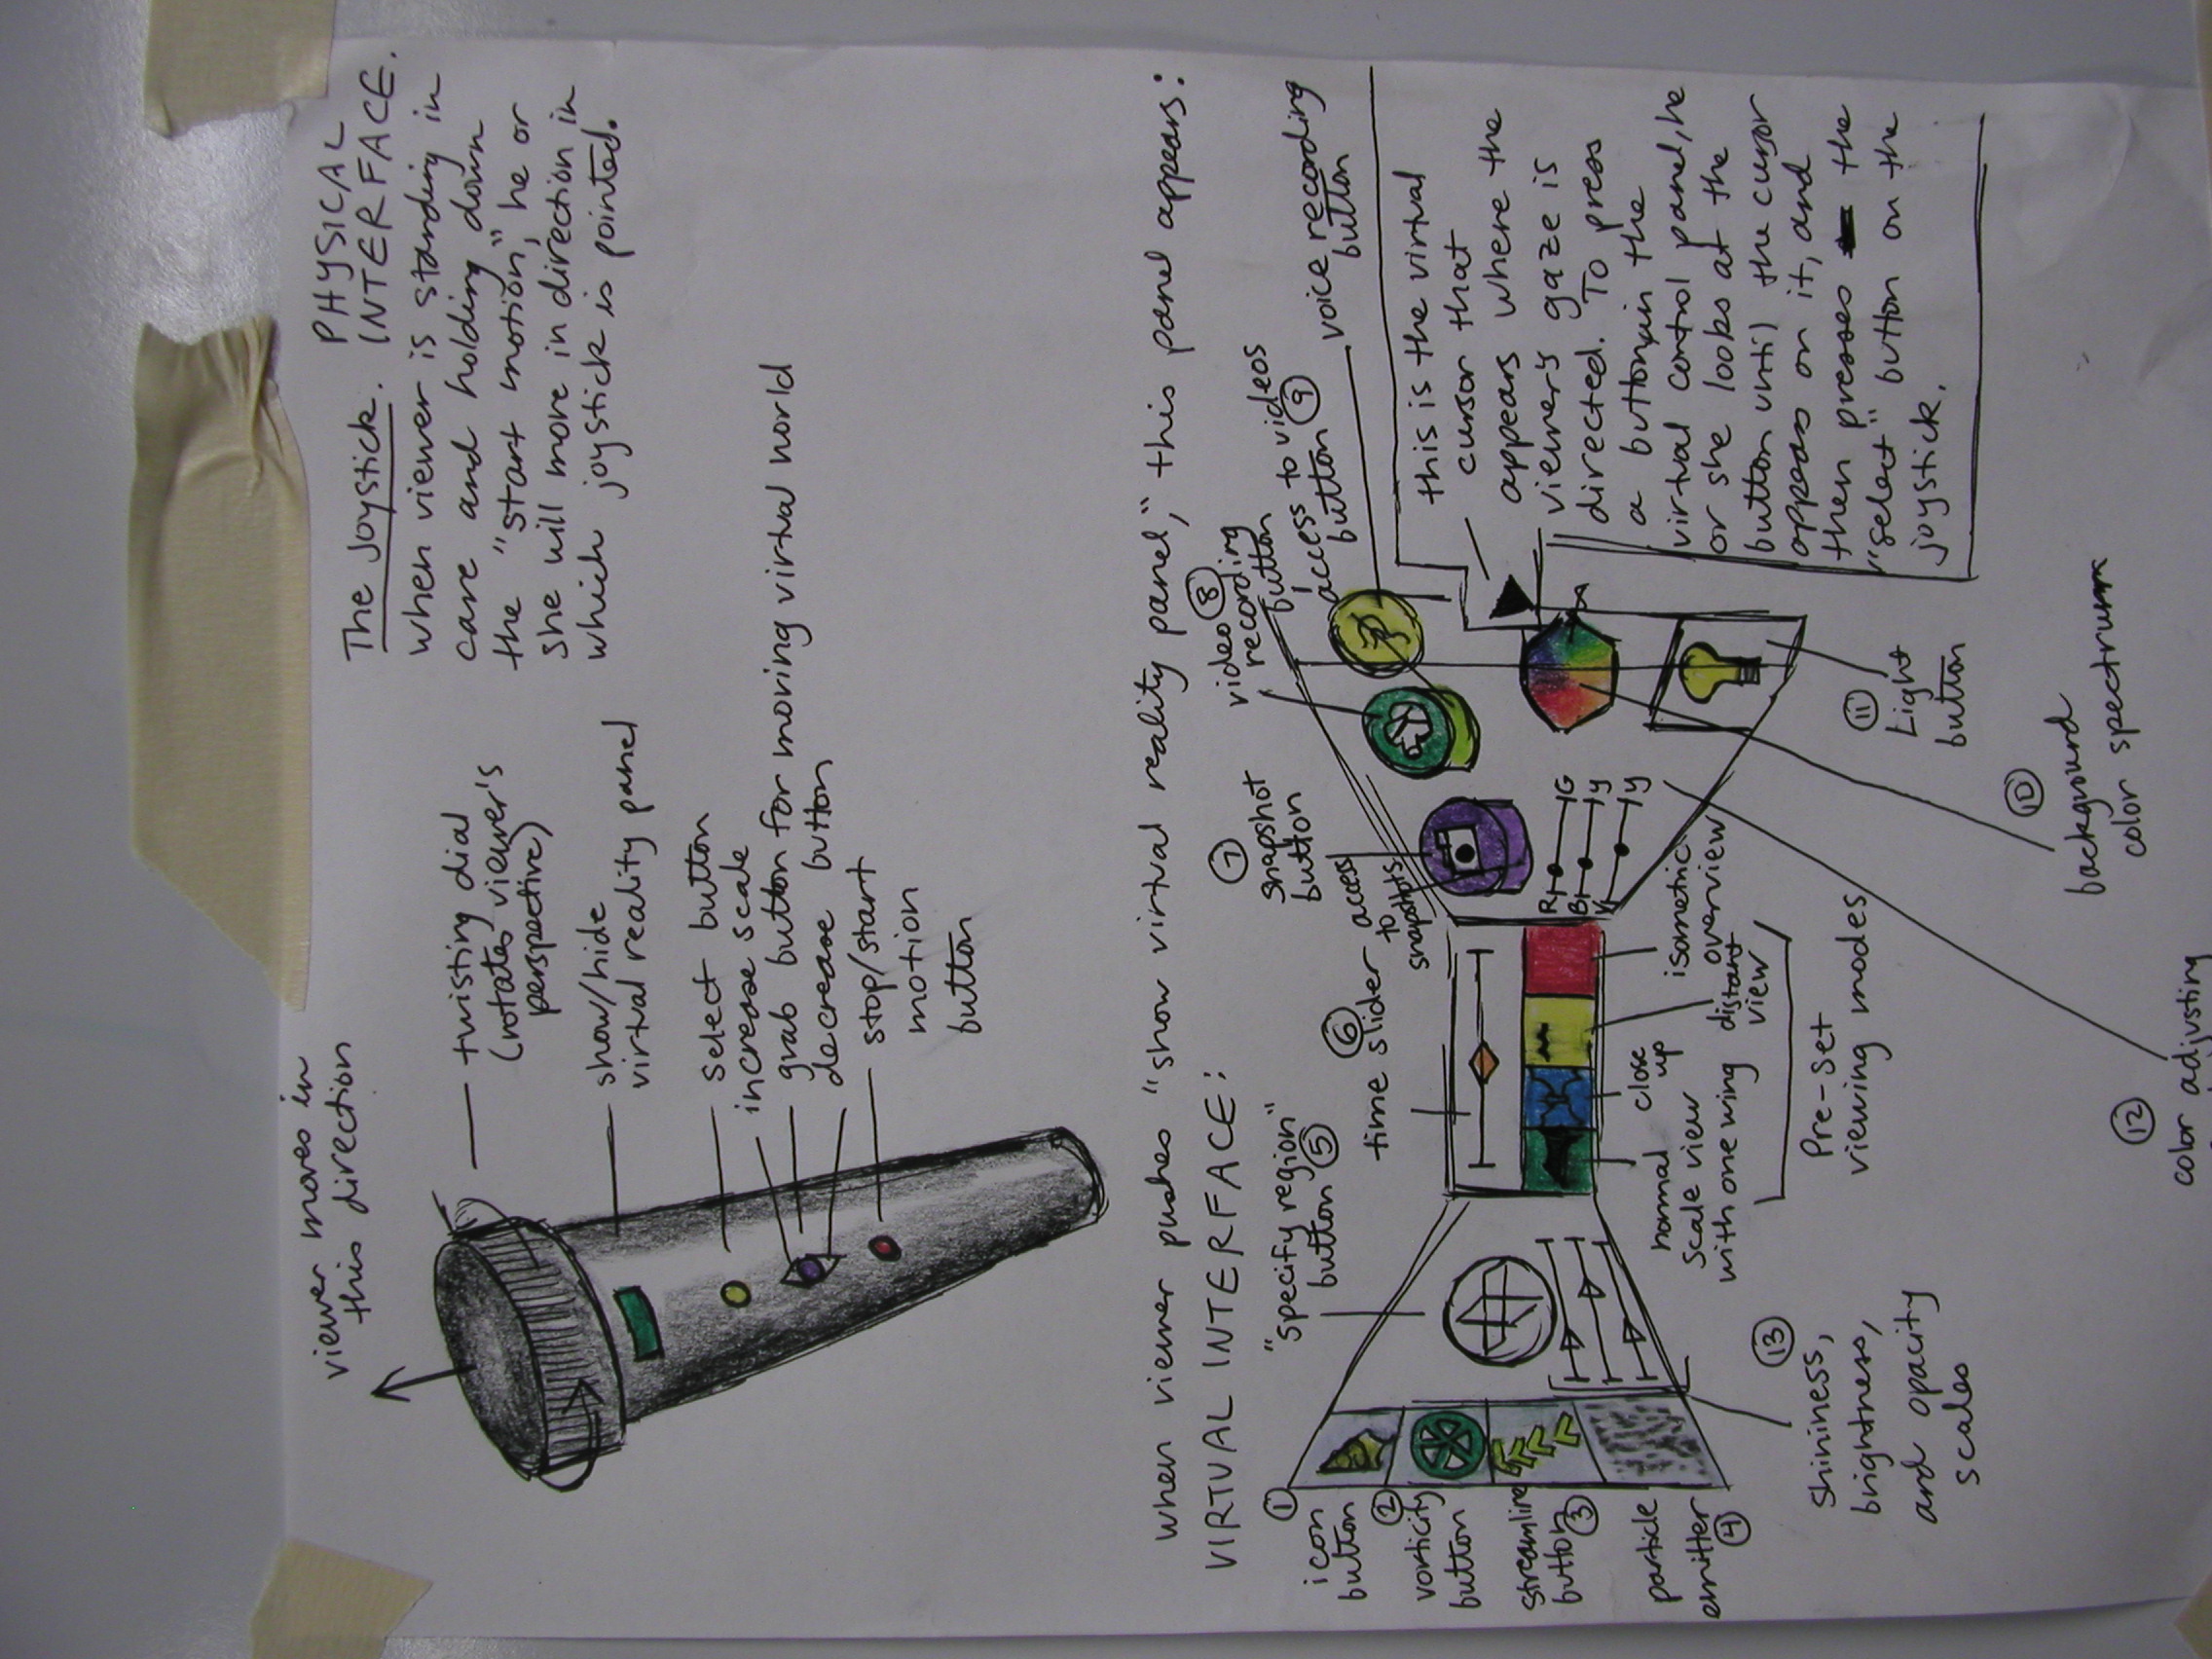 PHYSICAL
INTERFACE.
The Joystick.
when viewer is standing in
cave and holding down
the "start motion," he or
she will move in direction in
which joystick is pointed.
viewer moves in
this direction
twisting dial
(rotates viewer's
perspective)
show/hide
virtual reality panel
select button
increase scale
grab button for moving virtual world
decrease button
stop/start
motion
button
when viewer pushes "show virtual reality panel," this panel appears:
VIRTUAL INTERFACE:
① icon
button
② vorticity
button
streamline
button ③
particle
emitter
④
"specify region"
button ⑤
⑥
time slider
access
to
snapshots
⑦
snapshot
button
video ⑧
recording
button
access to videos
button ⑨
voice recording
button
R G
B Y
V Y
this is the virtual
cursor that
appears where the
viewer's gaze is
directed. To press
a button in the
virtual control panel, he
or she looks at the
button until the cursor
appears on it, and
then presses the
"select" button on the
joystick.
⑪
Light
button
⑩
background
color spectrum
⑫
color adjusting
normal
scale view
with one wing
close
up
distant
view
isometric
overview
Pre-set
viewing modes
⑬
Shininess,
brightness,
and opacity
scales